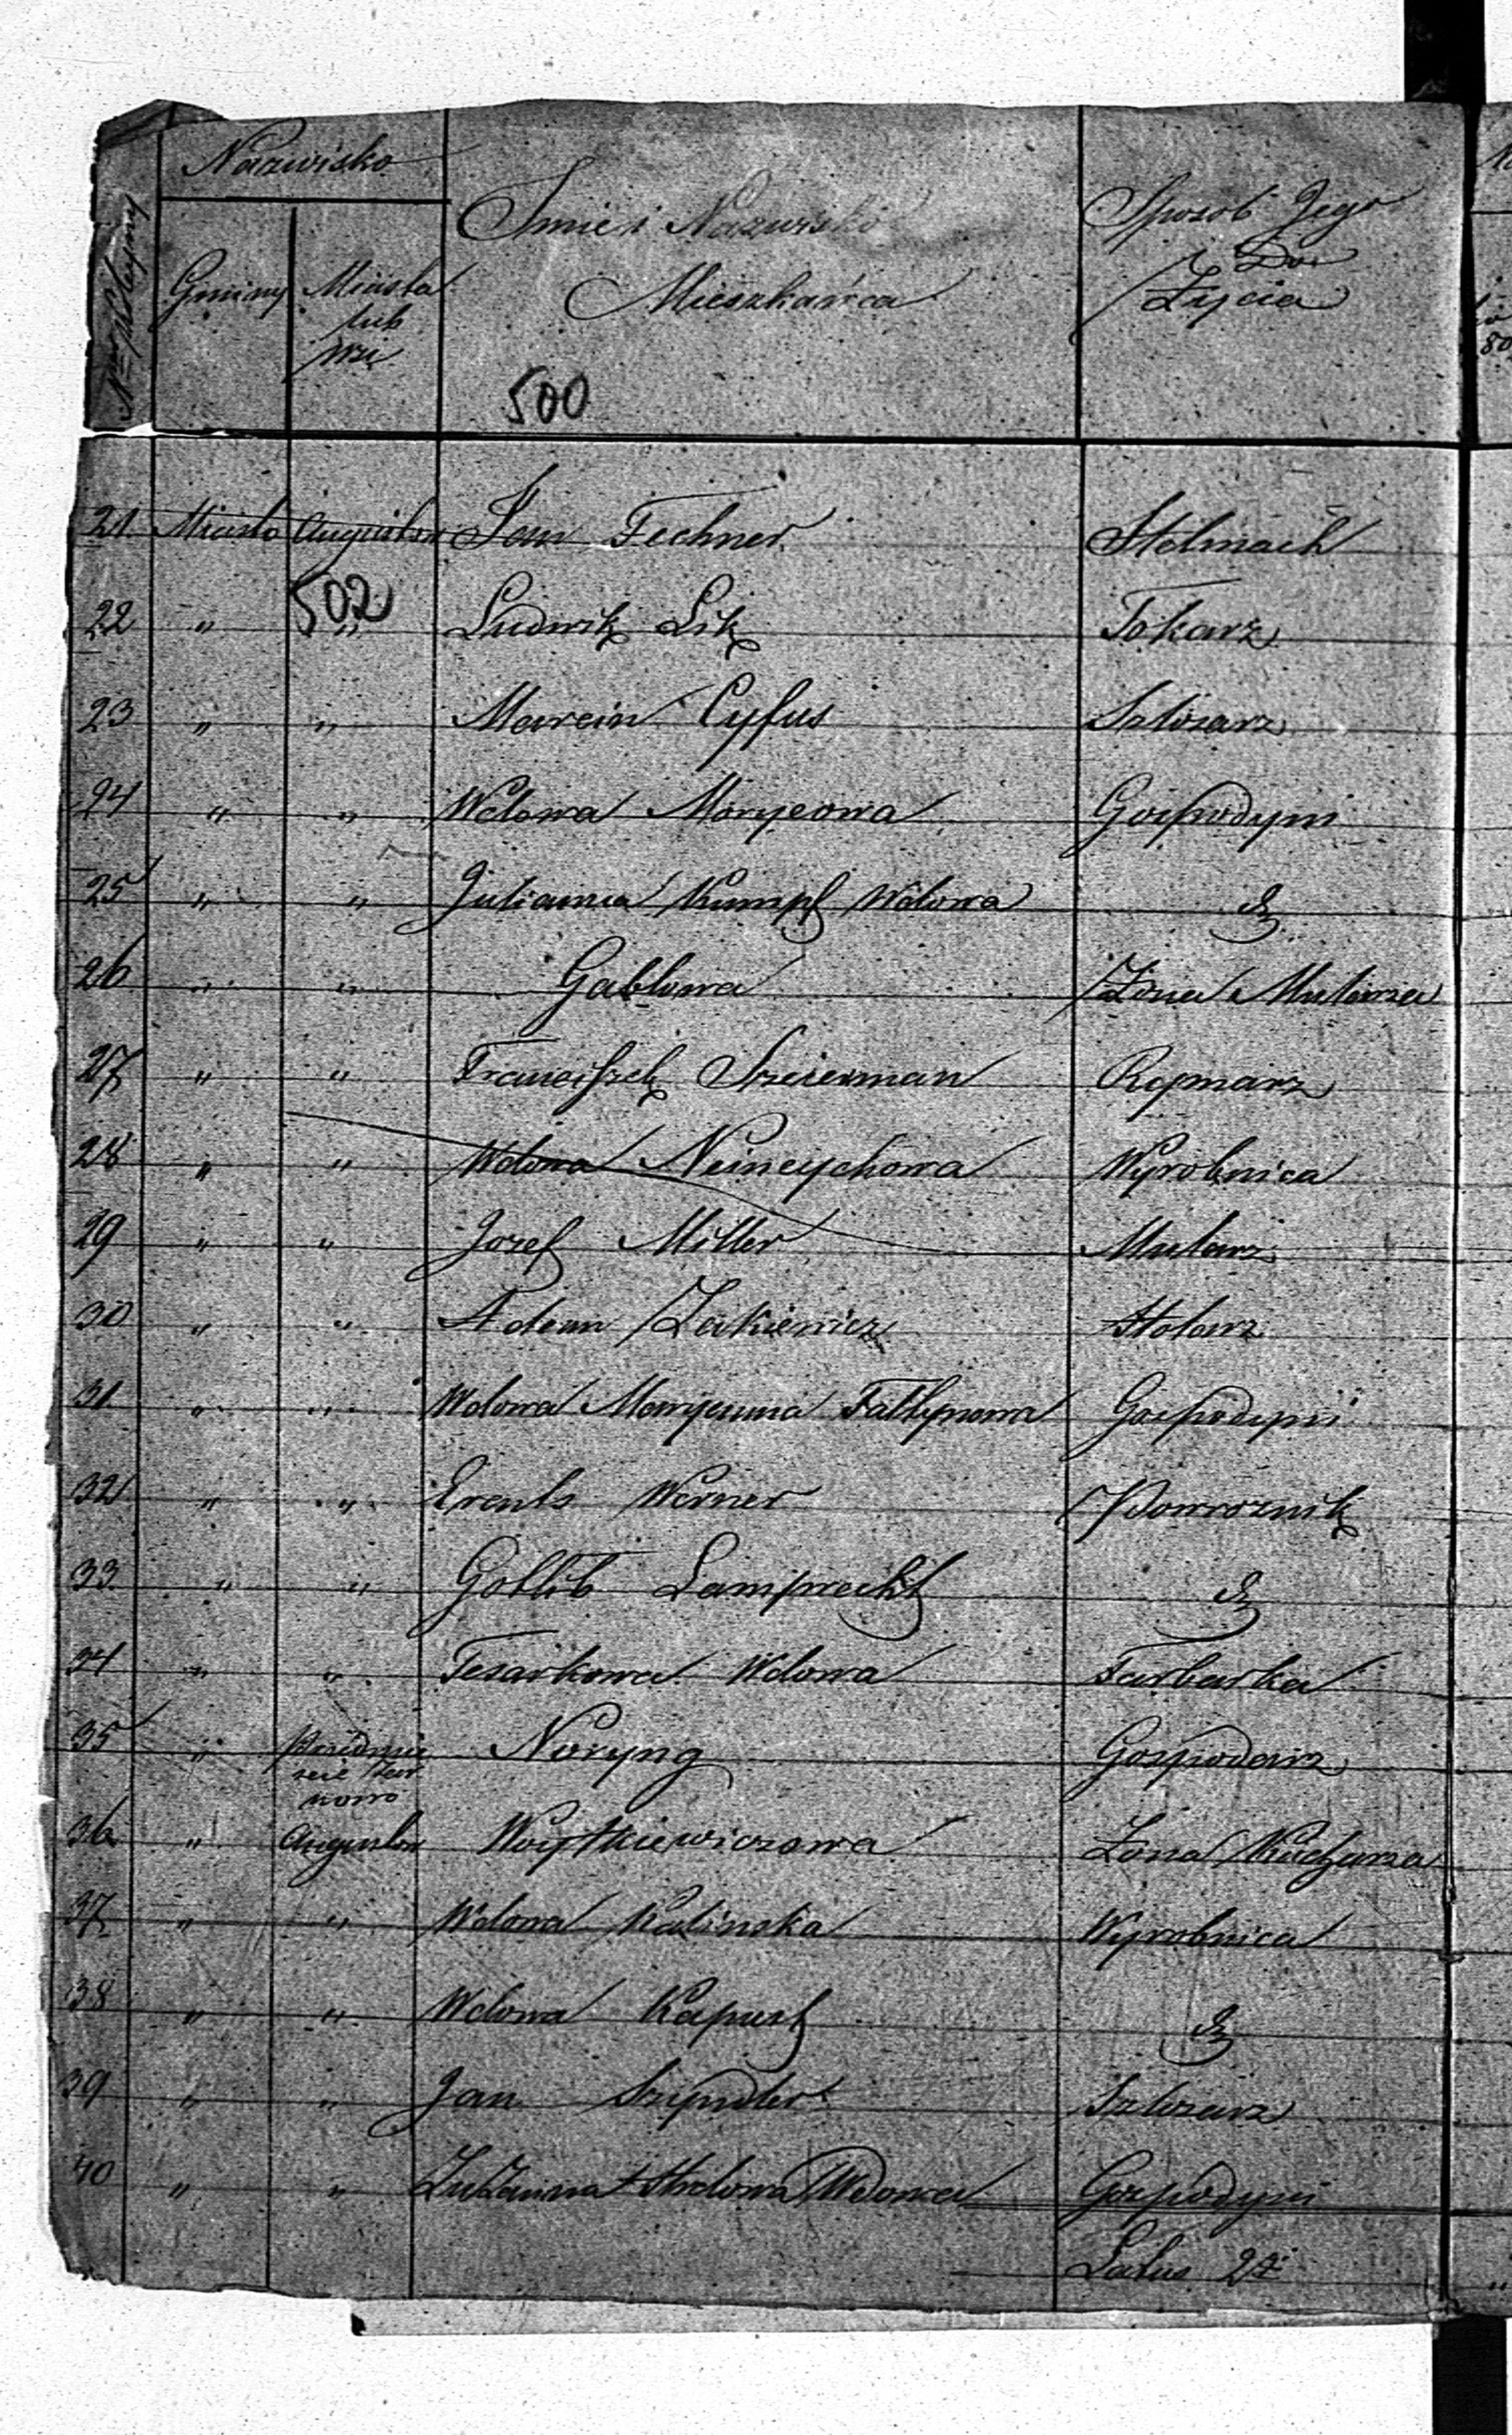 Nro bieżący
Nazwisko
Gminy
Miasta
lub
wsi
Imie i Nazwisko
Mieszkańca
Sposob Jego
Do
Życia
500
21 Miasto Augustow Jan Fechner Stelmach
502
22 " " Ludwik Lik Tokarz
23 " " Marcin Cyfus Szlosarz
24 " " Wdowa Morycowa Gospodyni
25 " " Julianna Kumpf Wdowa d
26 " " Gablowa Żona Mularza
27 " " Franciszek Szeierman Rymarz
28 " " Wdowa Neineychowa Wyrobnica
29 " " Jozef Miller Mularz
30 " " Adam Zakiewicz Stolarz
31 " " Wdowa Maryanna Faltynowa Gospodyni
32 " " Erents Werner Powroznik
33 " " Gotlib Lamprecht d
34 " " Tesarkowa Wdowa Farbarka
35 " Noryng Gospodarz
36 " Augustow Woytkiewiczowa Żona Kucharza
37 " " Wdowa Kalinska Wyrobnica
38 " " Wdowa Kapust d
39 " " Jan Szyndler Szlosarz
40 " " Zuzanna Wdowa Gospodyni
Latus